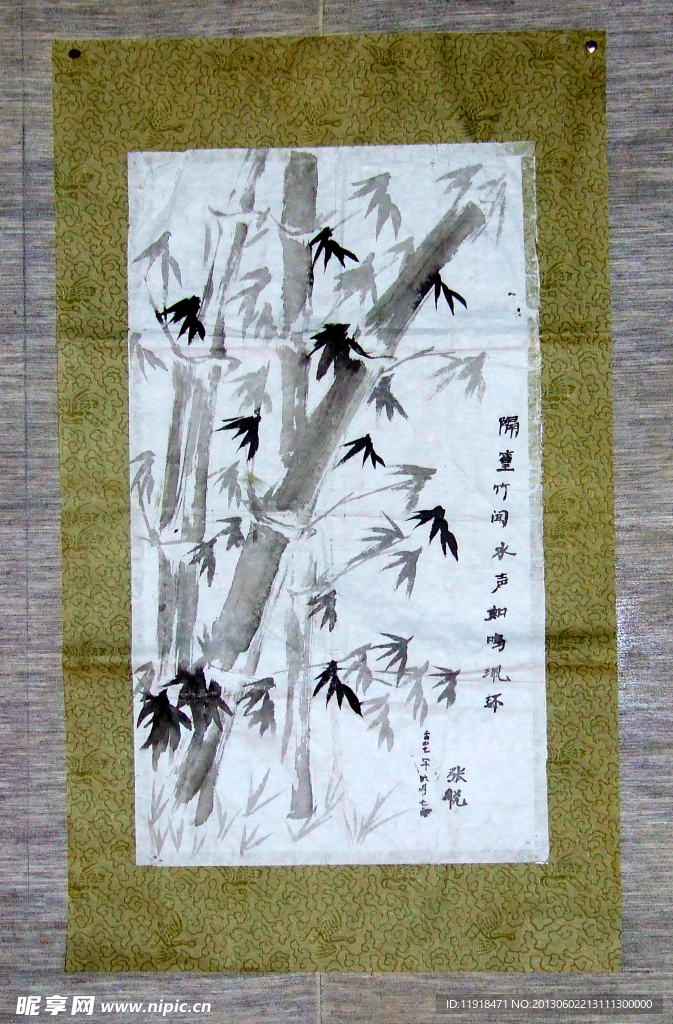 隔篁竹闻水声如鸣珮环
张悦
昵享网 www.nipic.cn
ID:11918471 NO:20130602213111300000